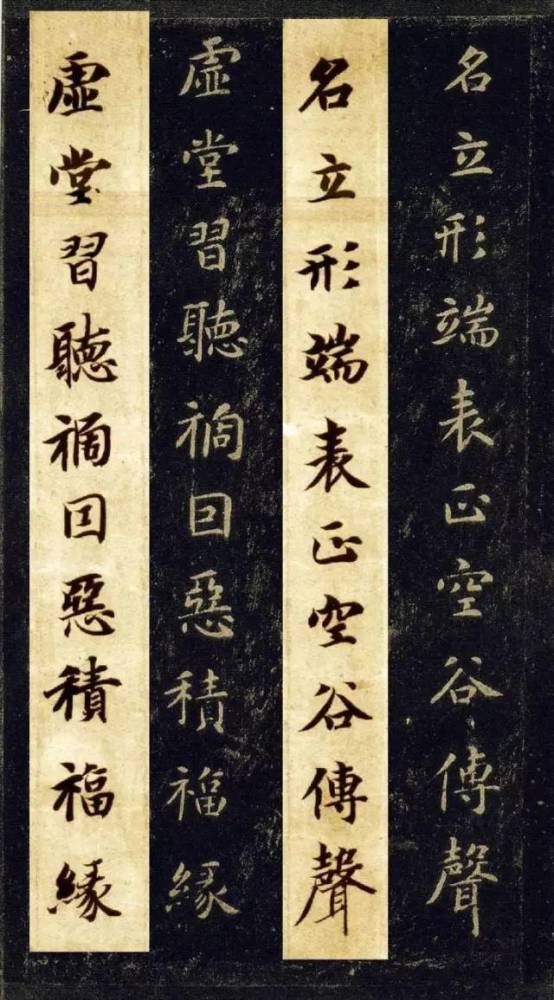 名立形端表正空谷傳聲
名立形端表正空谷傳聲
虛堂習聽禍因惡積福緣
虛堂習聽禍因惡積福緣